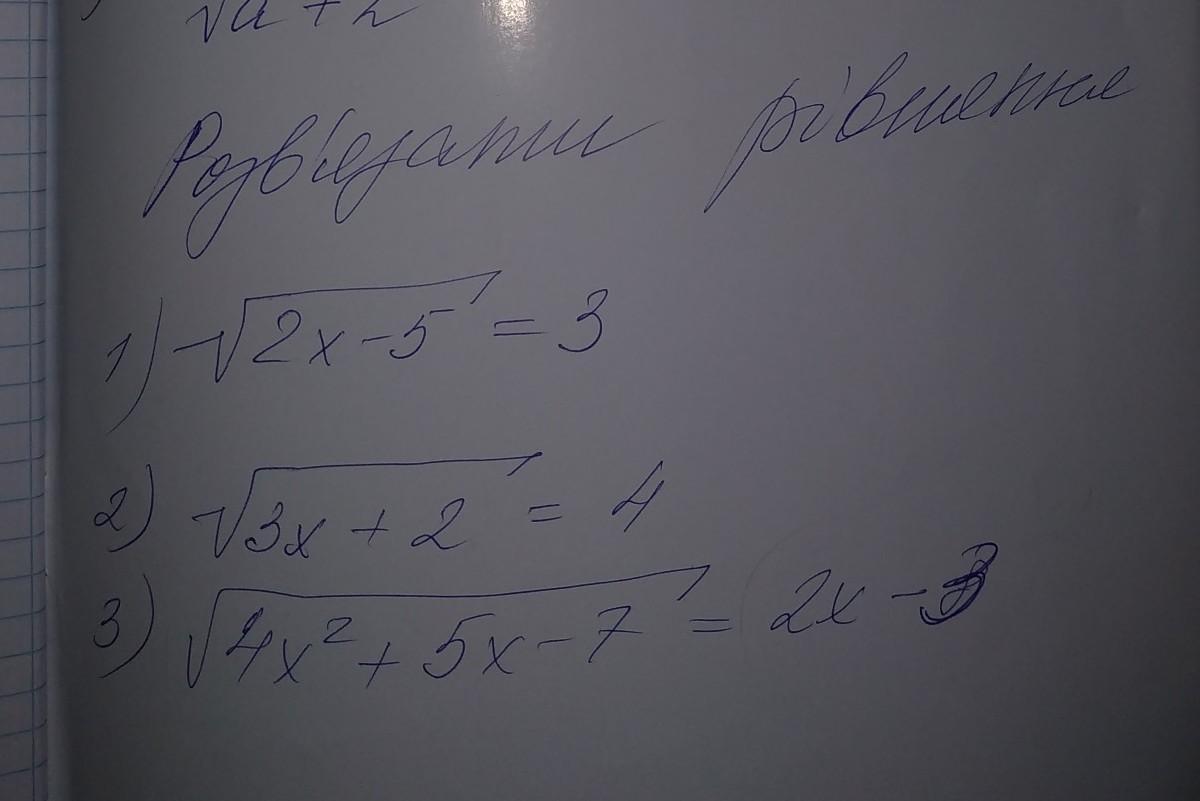 √a + 2
Розв'язати рівняння
1) √2x - 5 = 3
2) √3x + 2 = 4
3) √4x² + 5x - 7 = 2x - 3